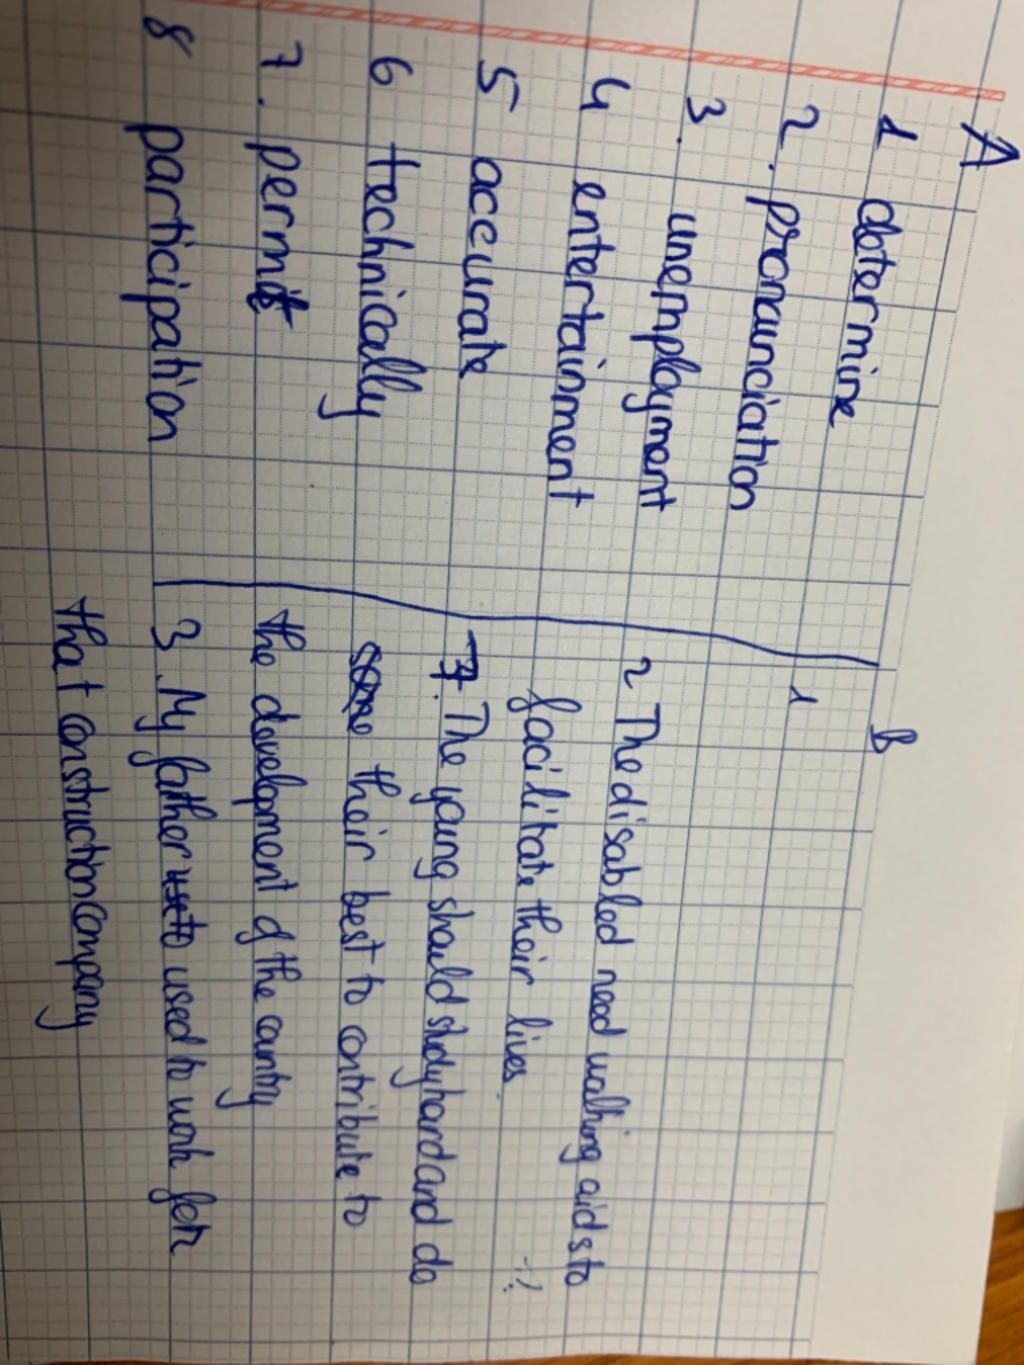 A
1 determine
2. pronounciation
3. unemployment
4 entertainment
5 accurate
6 technically
7. permit
8 participation
B
1
2 The disabled need walking aids to
facilitate their lives.
7. The young should study hard and do
their best to contribute to
the development of the country
3. My father used to work for
that construction company